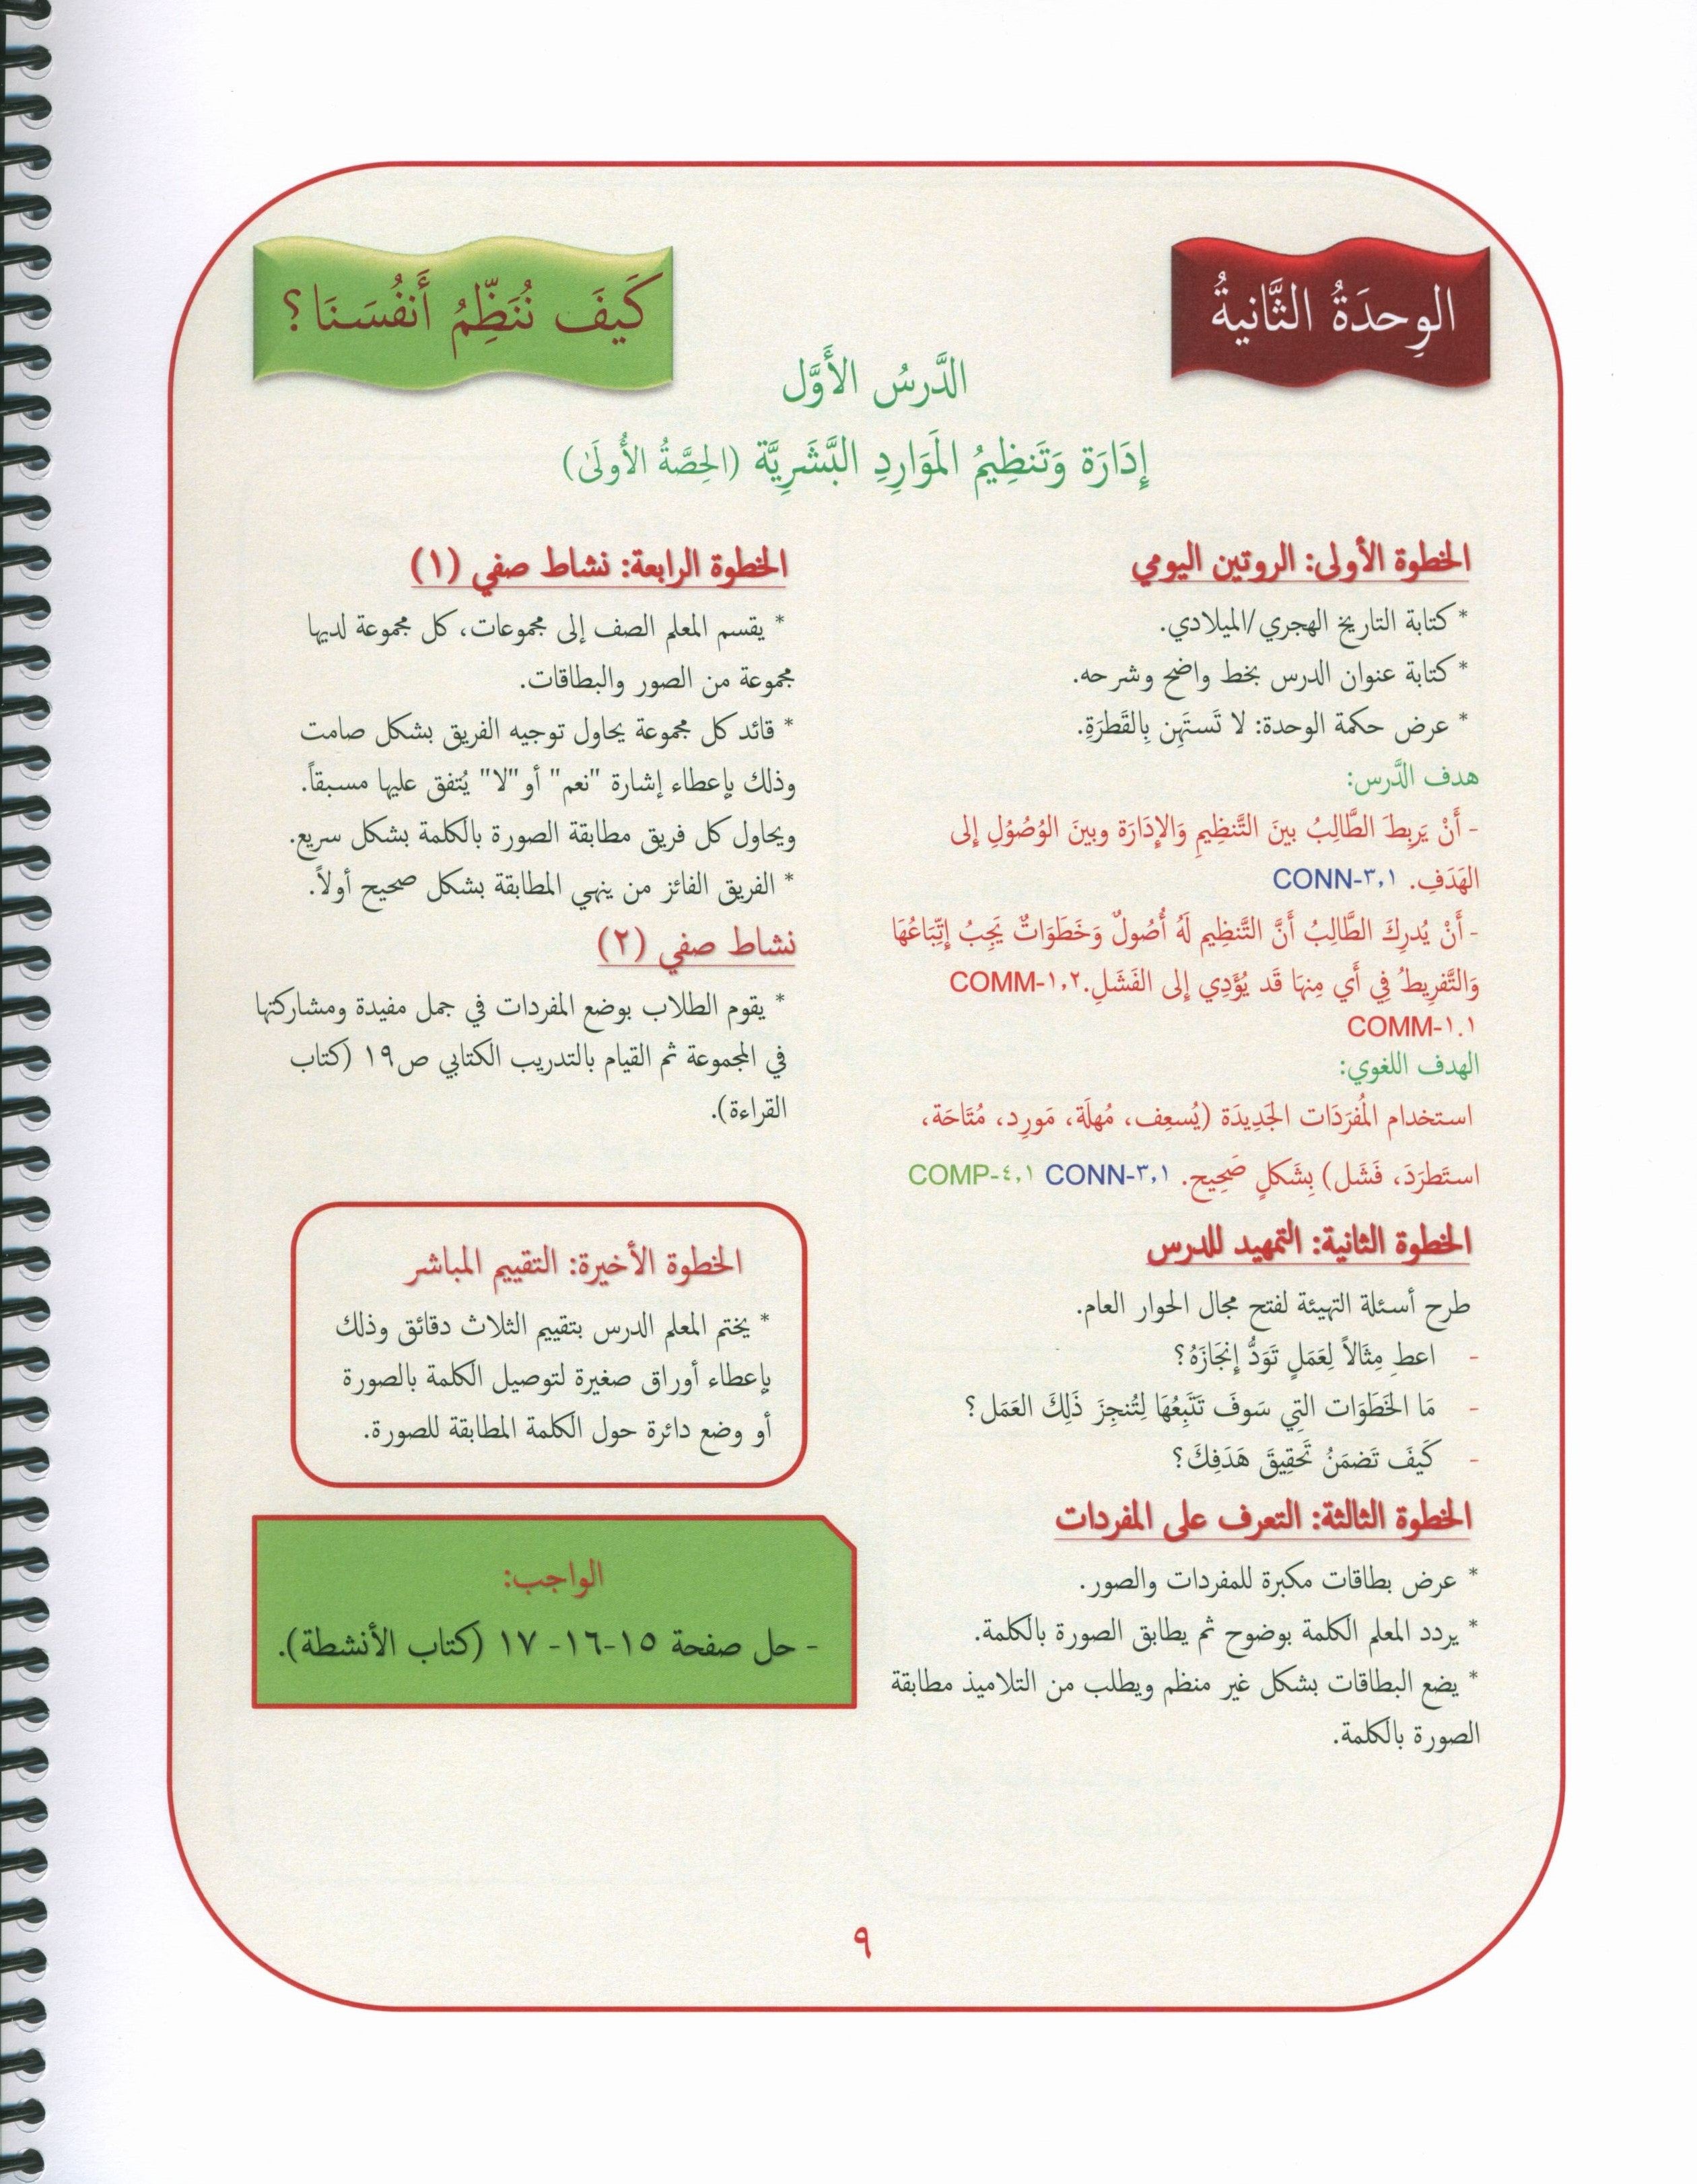 الوِحدَةُ الثَّانيةُ
كَيفَ نُنَظِّمُ أَنفُسَنَا؟
الدَّرسُ الأَوَّل
إِدَارَة وَتَنظِيمُ المَوَارِدِ البَّشَرِيَّة (الحِصَّةُ الأُولَىٰ)
الخطوة الأولى: الروتين اليومي
* كتابة التاريخ الهجري/الميلادي.
* كتابة عنوان الدرس بخط واضح وشرحه.
* عرض حكمة الوحدة: لا تَستَهِن بِالقَطرَةِ.
هدف الدَّرس:
- أَنْ يَربِطَ الطَّالِبُ بينَ التَّنظِيمِ وَالإِدَارَة وبينَ الوُصُوُلِ إلى
الهَدَفِ. CONN-٣,١
- أَنْ يُدرِكَ الطَّالِبُ أَنَّ التَّنظِيم لَهُ أُصُولٌ وَخَطَوَاتٌ يَجِبُ إتِّبَاعُهَا
وَالتَّفرِيطُ فِي أَي مِنهَا قَد يُؤَدِي إلى الفَشَلِ.COMM-١,٢
COMM-١.١
الهدف اللغوي:
استخدام المُفرَدَات الجَدِيدَة (يُسعِف، مُهلَة، مَورِد، مُتَاحَة،
استَطرَدَ، فَشَل) بِشَكلٍ صَحِيح. CONN-٣,١ COMP-٤,١
الخطوة الثانية: التمهيد للدرس
طرح أسئلة التهيئة لفتح مجال الحوار العام.
- اعطِ مِثَالاً لِعَمَلٍ تَوَدُّ إنجَازَهُ؟
- مَا الخَطَوَات التِي سَوفَ تَتَبِعُهَا لِتُنجِزَ ذَلِكَ العَمَل؟
- كَيفَ تَضمَنُ تَحقِيقَ هَدَفِكَ؟
الخطوة الثالثة: التعرف على المفردات
* عرض بطاقات مكبرة للمفردات والصور.
* يردد المعلم الكلمة بوضوح ثم يطابق الصورة بالكلمة.
* يضع البطاقات بشكل غير منظم ويطلب من التلاميذ مطابقة
الصورة بالكلمة.
الخطوة الرابعة: نشاط صفي (١)
* يقسم المعلم الصف إلى مجموعات، كل مجموعة لديها
مجموعة من الصور والبطاقات.
* قائد كل مجموعة يحاول توجيه الفريق بشكل صامت
وذلك بإعطاء إشارة "نعم" أو "لا" يُتفق عليها مسبقاً.
ويحاول كل فريق مطابقة الصورة بالكلمة بشكل سريع.
* الفريق الفائز من ينهي المطابقة بشكل صحيح أولاً.
نشاط صفي (٢)
* يقوم الطلاب بوضع المفردات في جمل مفيدة ومشاركتها
في المجموعة ثم القيام بالتدريب الكتابي ص١٩ (كتاب
القراءة).
الخطوة الأخيرة: التقييم المباشر
* يختم المعلم الدرس بتقييم الثلاث دقائق وذلك
بإعطاء أوراق صغيرة لتوصيل الكلمة بالصورة
أو وضع دائرة حول الكلمة المطابقة للصورة.
الواجب:
- حل صفحة ١٥-١٦- ١٧ (كتاب الأنشطة).
٩